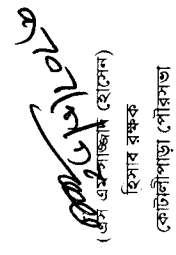 (এস এম সাজ্জাদ হোসেন)
হিসাব রক্ষক
কোটালীপাড়া পৌরসভা